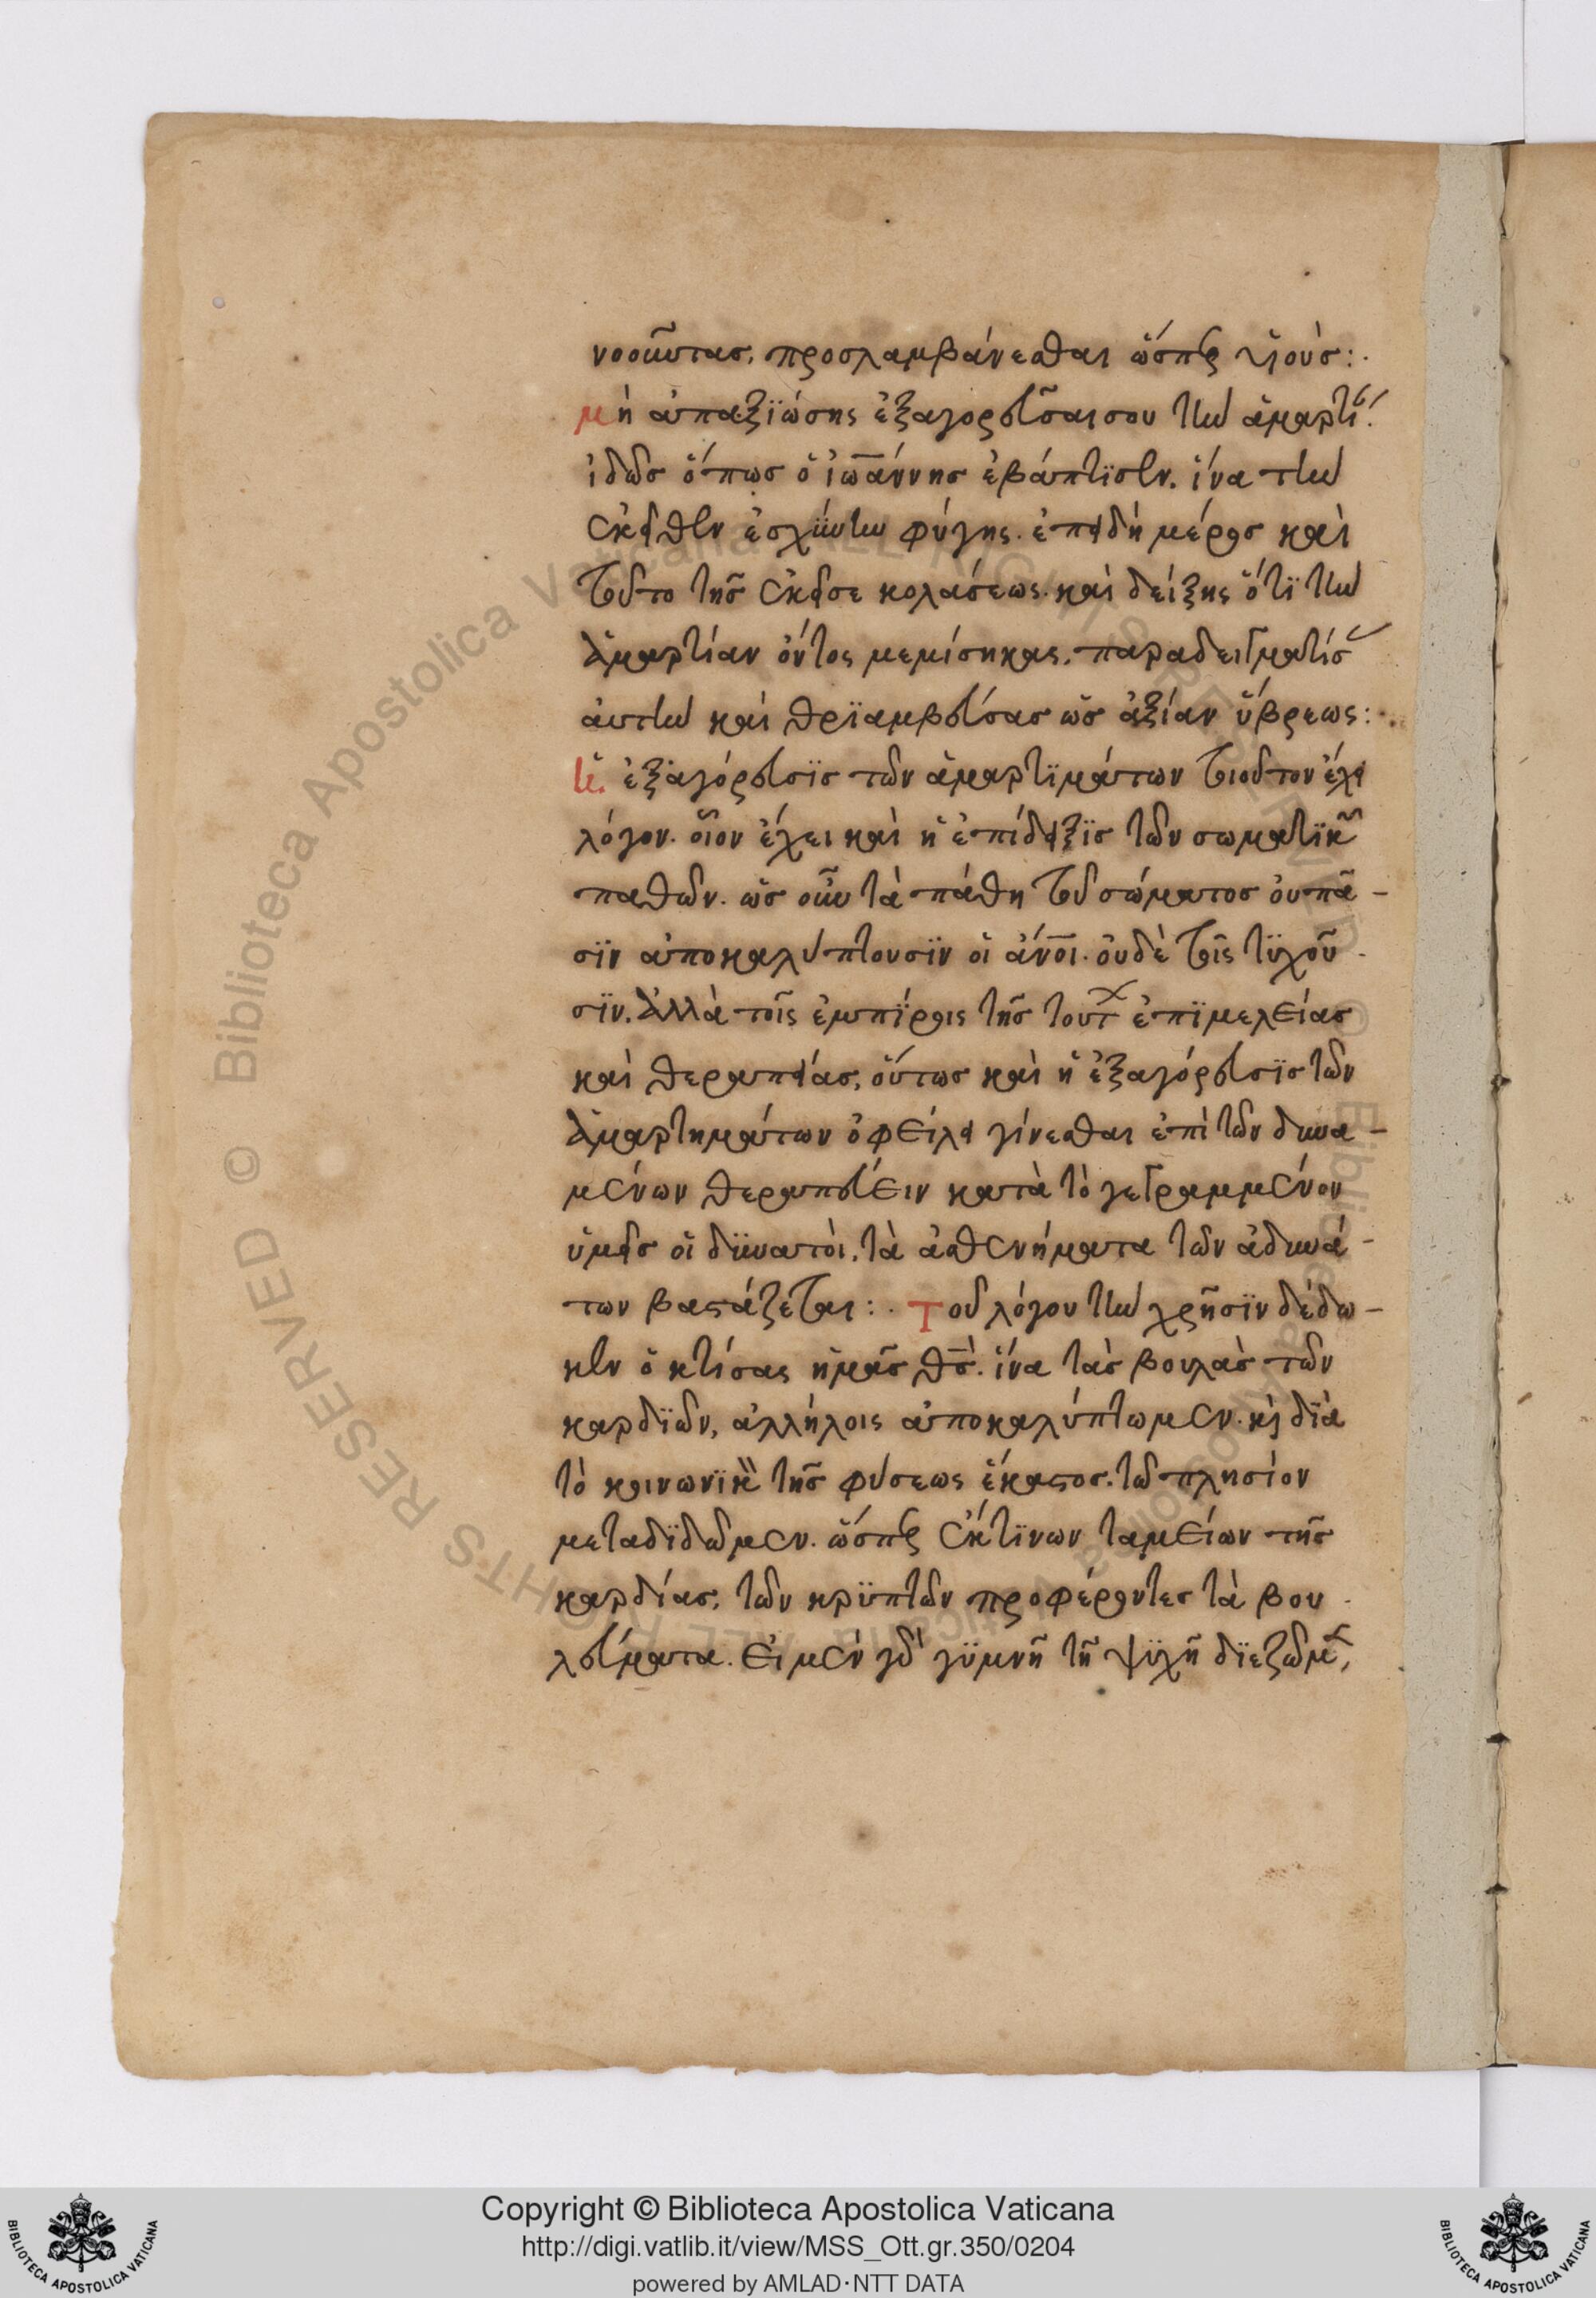 νοοῦντας, προσλαμβάνεσθαι ὥσπερ υἱούς:.
μὴ ἀπαξϊώσης ἐξαγορεῦσαι σου τὴν ἁμαρτί
ἰδὼς ὅπως ὁ ἰωάννης ἐβάπτϊσεν. ἵνα τὴν
ἐκεῖθεν ἐσχύνην φύγης. ἐπειδὴ μέρος καὶ
τοῦτο τῆς ἐκεῖσε κολάσεως. καὶ δείξης ὅτϊ τὴν
ἁμαρτίαν ὄντος μεμίσηκας. παραδειγματίσ
αὐτὴν καὶ θρϊαμβεύσας ὡς ἀξίαν ὕβρεως:.
ἐξαγόρευσϊς τῶν ἁμαρτϊμάτων τοιοῦτον ἔχει
λόγον. οἷον ἔχει καὶ ἡ ἐπίδειξϊς τῶν σωματϊκῶν
παθῶν. ὡς οὖν τὰ πάθη τοῦ σώματος οὐ πᾶ-
σϊν ἀποκαλύπτουσϊν οἱ ἄνοι. οὐδὲ τοῖς τϋχοῦ-
σϊν. ἀλλὰ τοῖς ἐμπϊροις τῆς τουτ ἐπϊμελείας
καὶ θεραπείας, οὕτως καὶ ἡ ἐξαγόρευσϊς τῶν
ἁμαρτημάτων ὀφείλει γίνεσθαι ἐπὶ τῶν δυνα-
μένων θεραπεύειν κατὰ τὸ γεγραμμένον
ὑμεῖς οἱ δϋνατοὶ. τὰ ἀσθενήματα τῶν ἀδυνά-
των βαστάζεται:. Τοῦ λόγου τὴν χρῆσϊν δέδω-
κεν ὁ κτίσας ἡμᾶς θς. ἵνα τὰς βουλὰς τῶν
καρδϊῶν, ἀλλήλοις ἀποκαλύπτωμεν. κὶ δϊὰ
τὸ κοινωνϊκὸν τῆς φύσεως ἕκαστος. τῶ πλησίον
μεταδϊδῶμεν. ὥσπερ ἔκ τϊνων ταμείων τῆς
καρδίας, τῶν κρϋπτῶν προφέροντες τὰ βου-
λεύματα. εἰ μὲν γὰρ γϋμνῆ τῆ ψϋχῆ δϊεζῶμεν,
Copyright © Biblioteca Apostolica Vaticana
http://digi.vatlib.it/view/MSS_Ott.gr.350/0204
powered by AMLAD·NTT DATA